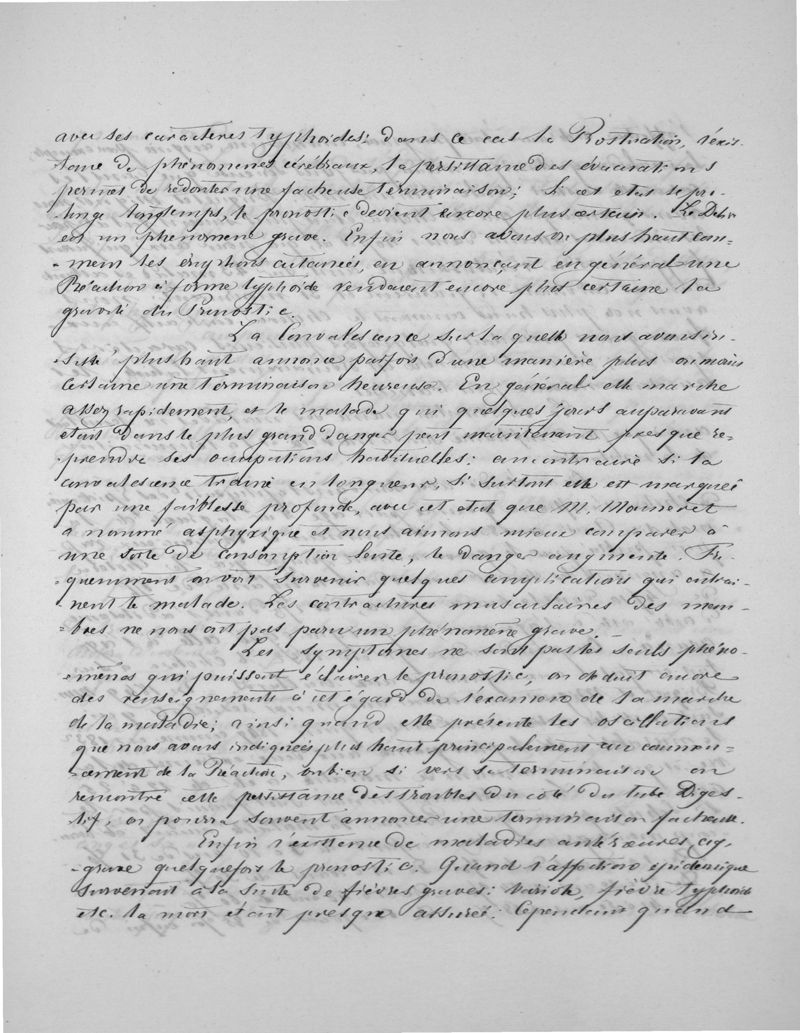 avec ses caractères typhoïdes; dans ce cas la Prostration, l'exis-
tance de phénomènes cérébraux, la persistance des évacuations
permet de redouter une facheuse terminaison; Si cet etat se pro-
longe longtemps, le pronostic devient encore plus certain. Le Délire
est un phénomène grave. Enfin nous avons vu plus haut com-
-ment les éruptions cutanées, en annonçant en général une
Réaction à forme typhoïde rendaient encore plus certaine la
gravité du Pronostic.
La Convalescence sur laquelle nous avons in-
-sisté plus haut annonce parfois d'une manière plus ou moins
certaine une terminaison heureuse. En général elle marche
assez rapidement, et le malade qui quelques jours auparavant
etait dans le plus grand danger peut maintenant presque re-
-prendre ses occupations habituelles; au contraire si la
convalescence traine en longueur, si surtout elle est marquée
par une faiblesse profonde, avec cet etat que M. Monneret
a nommé asphyxique et nous aimons mieux comparer à
une sorte de consomption lente, le danger augmente. Fré-
-quemment on voit survenir quelques complications qui entrai-
-nent le malade. Les contractures musculaires des mem-
-bres ne nous ont pas paru un phénomène grave. —
Les symptomes ne sont pas les seuls phéno-
-mènes qui puissent éclairer le pronostic, on déduit encore
des renseignements à cet égard de l'examen de la marche
de la maladie; ainsi quand elle présente les oscillations
que nous avons indiquées plus haut principalement au commen-
-cement de la Réaction, ou bien si vers sa terminaison on
remontre cette persistance des troubles du coté du tube Diges-
-tif, on pourra souvent annoncer une terminaison facheuse.
Enfin l'existence de maladies antérieures ag-
-grave quelquefois le pronostic. Quand l'affection épidémique
survenait à la suite de fièvres graves: variole, fièvre typhoïde
etc. la mort était presque assurée. Cependant quand